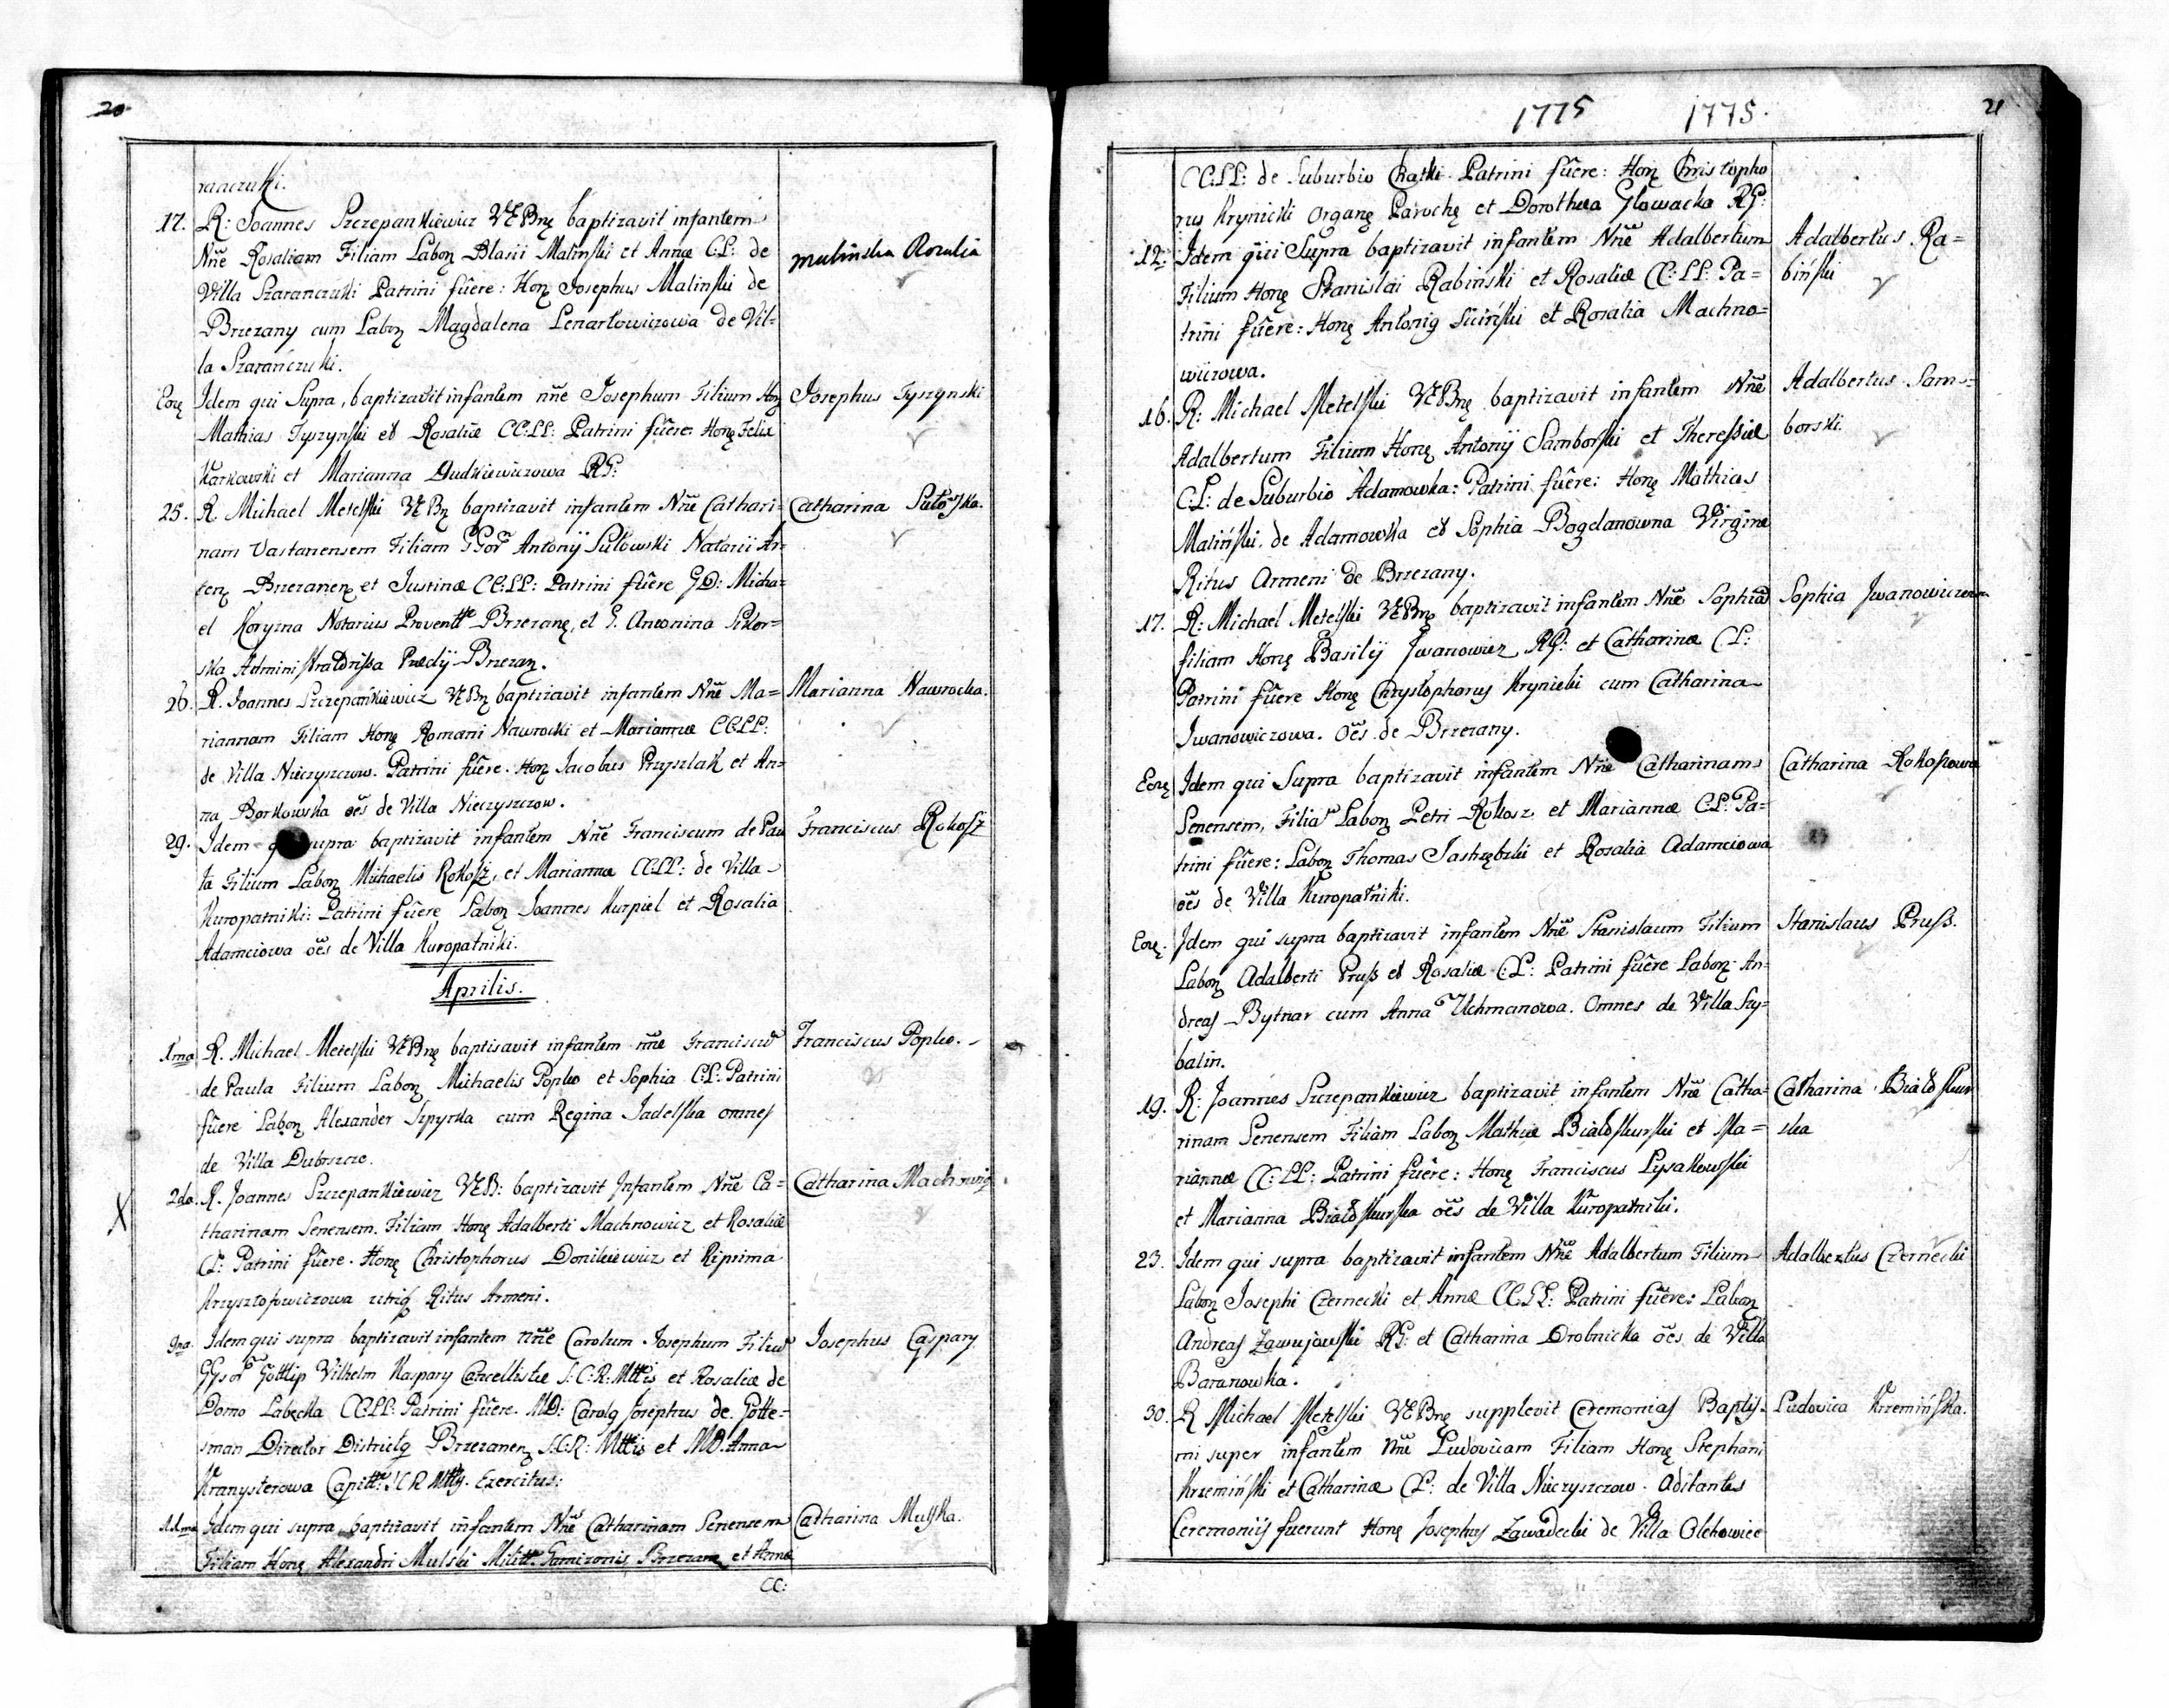 20
ranczuki.
17. R: Joannes Szczepankiewicz VEBnę baptizavit infantem
Nne Rosaliam Filiam Labon Blasii Malinski et Annæ C:L: de
Villa Szaranczuki Patrini fuere: Hon Josephus Malinski de
Brzezany cum Labon Magdalena Lenartowiczowa de Vil=
la Szaranczuki.
Malinska Rozalia
Eoę Idem qui Supra, baptizavit infantem nne Josephum Filium Hon
Mathias Tyszynski et Rosaliæ CC:LL: Patrini fuere: Honę Felix
Karkowski et Marianna Dudkiewiczowa RG:
Josephus Tyszynski
25. R. Michael Metelski VEBn baptizavit infantem Nne Cathari=
nam Vastanensem Filiam GGor Antonij Sutowski Notarii Ar=
ten Brzezanen et Justinæ CC:LL: Patrini fuere GD: Micha=
el Koryzna Notarius Proventt Brzezanę, et G. Antonina Sikor=
ska Administratrissa Prædij Brzezan.
Catharina Sutoska.
26. R. Joannes Szczepankiewicz VEBn baptizavit infantem Nne Ma=
riannam Filiam Honę Romani Nawrocki et Mariannæ CC:LL:
de Villa Nieczyszczow. Patrini fuere. Hon Jacobus Przyszlak et An=
na Borkowska oes de Villa Nieczyszczow.
Marianna Nawrocka.
29. Idem supra baptizavit infantem Nne Franciscum de Pau
la Filium Labon Michaelis Rokosz, et Mariannæ CC:LL: de Villa
Kuropatniki: Patrini fuere Labon Joannes Kurpiel et Rosalia
Adamciowa oes de Villa Kuropatniki.
Franciscus Rokosz
Aprilis.
1ma R. Michael Metelski VEBnę baptisavit infantem nne Franciscu
de Paula Filium Labon Michaelis Popko et Sophia C:L: Patrini
fuere Labon Alexander Szpyrka cum Regina Jadelska omnes
de Villa Dubszcze.
Franciscus Popko.
2da R. Joannes Szczepankiewicz VEB: baptizavit Infantem Nne Ca=
tharinam Senensem. Filiam Honę Adalberti Machnowicz et Rosaliæ
CL: Patrini fuere. Honę Christophorus Donikiewicz et Ripima
Krzysztofowiczowa utriq Ritus Armeni.
X
Catharina Machnowig
9na Idem qui supra baptizavit infantem nne Carolum Josephum Filiu
GGsor Gottlip Vilhelm Kaspary Cancellistæ S:C:R:Mttis et Rosaliæ de
Domo Labecka CC:LL: Patrini fuere. MD: Carolg Josephus de Gotte=
sman Director Districtg Brzezanen S:C:R: Mttis et MD. Anna
Kranysterowa Capitt: S C R Mtty. Exercitus:
Josephus Caspary
11ma Idem qui supra baptizavit infantem Nne Catharinam Senensem
Filiam Honę Alexandri Mulski Militt. Garnizonis Brzezanę et Annæ
CC:
Catharina Mulska.
1775 1775. 21
CC:LL: de Suburbio Chatki Patrini fuere: Hon Christopho
rus Krynicki Organę Parochę et Dorothea Głowacka RG:
12: Idem qui Supra baptizavit infantem Nne Adalbertum
Filium Honę Stanislai Rabinski et Rosaliæ CC:LL: Pa=
trini fuere: Honę Antonig Siciński et Rosalia Machno=
wiczowa.
Adalbertus Ra=
biński
16. R: Michael Metelski VEBnę baptizavit infantem Nne
Adalbertum Filium Honę Antonij Samborski et Theressiæ
C:L: de Suburbio Adamowka: Patrini fuere: Honę Mathias
Maliński, de Adamowka et Sophia Bogdanowna Virgine
Ritus Armeni de Brzezany.
Adalbertus Sam=
borski.
17. R: Michael Metelski VEBnę baptizavit infantem Nne Sophia
filiam Honę Basilij Iwanowicz RG: et Catharinæ C:L:
Patrini fuere Honę Chrystophorus Krynicki cum Catharina
Iwanowiczowa. Oes de Brzezany.
Sophia Iwanowiczowna
Eoę Idem qui Supra baptizavit infantem Nne Catharinam
Senensem, Filia Labon Petri Rokosz et Mariannæ C:L: Pa=
trini fuere: Labon Thomas Jastrzębski et Rosalia Adamciowa
oes de Villa Kuropatniki.
Catharina Rokoszowa
Eoę. Idem qui supra baptizavit infantem Nne Stanislaum Filium
Labon Adalberti Pruss et Rosaliæ C:L: Patrini fuere Labon An=
dreas Bytnar cum Anna Uchmanowa. Omnes de Villa Szy=
balin.
Stanislaus Pruss.
19. R: Joannes Szczepankiewicz baptizavit infantem Nne Catha=
rinam Senensem Filiam Labon Mathiæ Białoskurski et Ma=
riannæ CC:LL: Patrini fuere: Honę Franciscus Łysakowski
et Marianna Białoskurska oes de Villa Kuropatniki.
Catharina Białoskur
ska
23. Idem qui supra baptizavit infantem Nne Adalbertum Filium
Labon Josephi Czernecki et Annæ CC:LL: Patrini fuere: Labon
Andreas Zawujowski RG: et Catharina Drobnicka oes de Villa
Baranowka.
Adalbertus Czernecki
30. R Michael Metelski VEBnę supplevit Ceremonias Baptys=
mi super infantem nne Ludovicam Filiam Honę Stephani
Krzemiński et Catharinæ CL: de Villa Nieczyszczow. Aditantes
Ceremoniis fuerunt Honę Josephus Zawadecki de Villa Olchowiec
Ludovica Krzemińska.